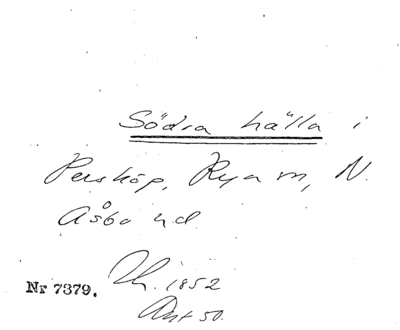 Södra hälla i
Perstöp, Rya sn, N.
Åsbo hd.
Th. 1852
Nr 7379.
Ant 50.